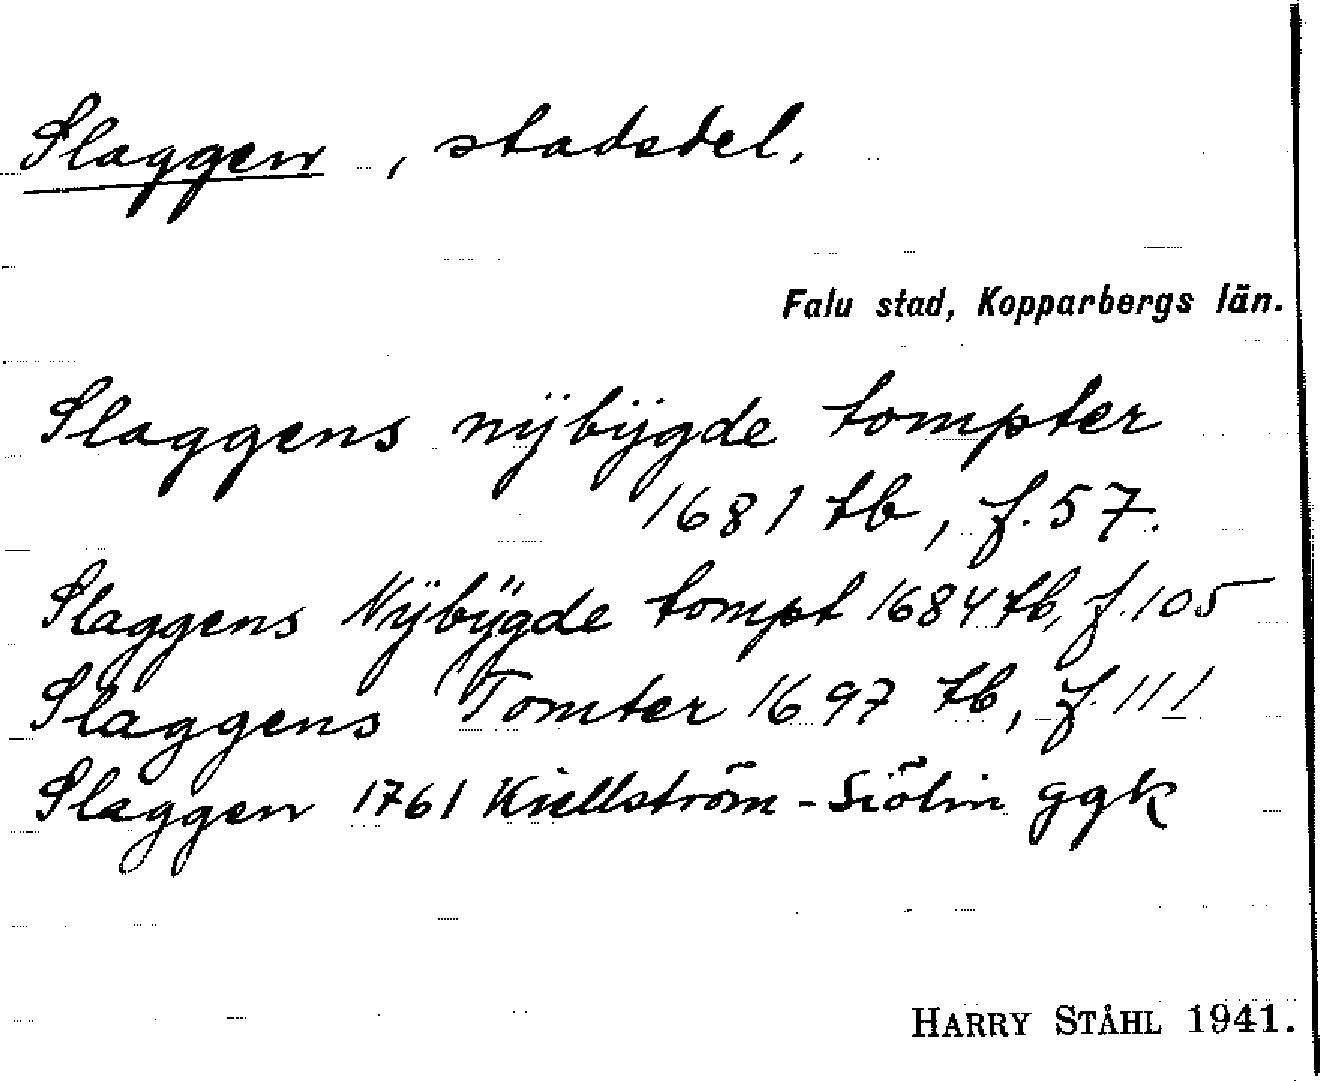 Slaggen, stadsdel.
Falu stad, Kopparbergs län.
Slaggens nÿbÿgde tompter
1681 tb, f. 57.
Slaggens Nÿbÿgde tompt 1684 tb, f. 105
Slaggens Tomter 1697 tb, f. 111
Slaggen 1761 Kiellström - Siölin ggk
HARRY STÅHL 1941.